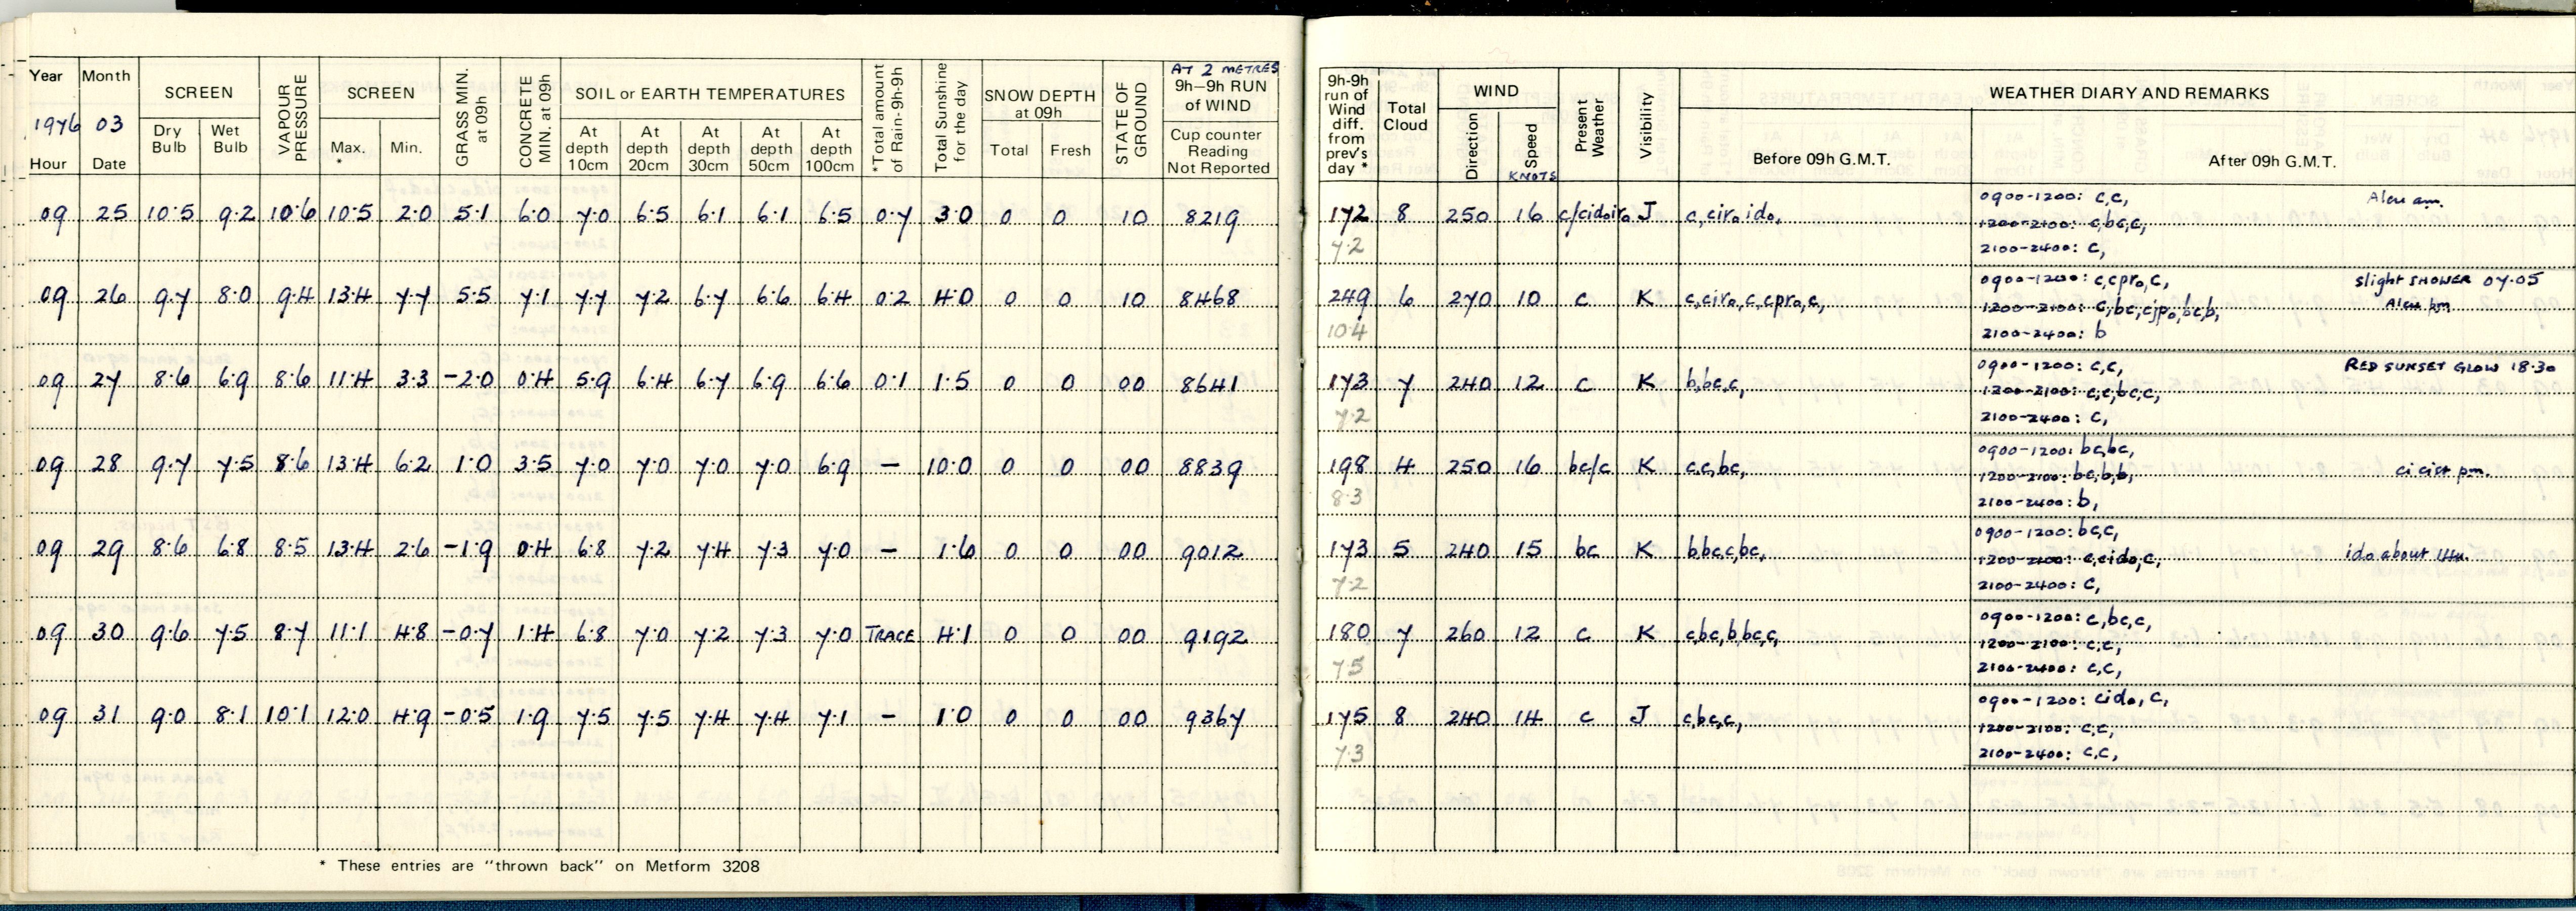 Year Month SCREEN VAPOUR PRESSURE SCREEN GRASS MIN. at 09h CONCRETE MIN. at 09h SOIL or EARTH TEMPERATURES *Total amount of Rain-9h-9h Total Sunshine for the day SNOW DEPTH at 09h STATE OF GROUND AT 2 METRES 9h–9h RUN of WIND
1976 03
Hour Date Dry Bulb Wet Bulb Max. * Min. At depth 10cm At depth 20cm At depth 30cm At depth 50cm At depth 100cm Total Fresh Cup counter Reading Not Reported
09 25 10.5 9.2 10.6 10.5 2.0 5.1 6.0 7.0 6.5 6.1 6.1 6.5 0.7 3.0 0 0 10 8219
09 26 9.7 8.0 9.4 13.4 7.7 5.5 7.1 7.7 7.2 6.7 6.6 6.4 0.2 4.0 0 0 10 8468
09 27 8.6 6.9 8.6 11.4 3.3 -2.0 0.4 5.9 6.4 6.7 6.9 6.6 0.1 1.5 0 0 00 8641
09 28 9.7 7.5 8.6 13.4 6.2 1.0 3.5 7.0 7.0 7.0 7.0 6.9 – 10.0 0 0 00 8839
09 29 8.6 6.8 8.5 13.4 2.6 -1.9 0.4 6.8 7.2 7.4 7.3 7.0 – 1.6 0 0 00 9012
09 30 9.6 7.5 8.7 11.1 4.8 -0.7 1.4 6.8 7.0 7.2 7.3 7.0 TRACE 4.1 0 0 00 9192
09 31 9.0 8.1 10.1 12.0 4.9 -0.5 1.9 7.5 7.5 7.4 7.4 7.1 – 1.0 0 0 00 9367
* These entries are "thrown back" on Metform 3208
9h-9h run of Wind diff. from prev's day * Total Cloud WIND Present Weather Visibility WEATHER DIARY AND REMARKS
Direction Speed KNOTS Before 09h G.M.T. After 09h G.M.T.
0900-1200: c,c,
172 8 250 16 J 1200-2100: c,bc,c,
7.2 2100-2400: c,
0900-1200: c,cpr₀,c, slight SHOWER 07.05
249 6 270 10 c K c,cir₀,c,cpr₀,c, 1200-2100:
10.4 2100-2400: b
0900-1200: c,c, RED SUNSET GLOW 18.30
173 7 240 12 c K b,bc,c, 1200-2100: c,c,bc,c,
7.2 2100-2400: c,
0900-1200: bc,bc,
198 4 250 16 bc/c K c,c,bc, 1200-2100: bc,b,b, ci cist pm.
8.3 2100-2400: b,
0900-1200: bc,c,
173 5 240 15 bc K b,bc,c,bc, 1200-2100: c,cid₀,c, id₀ about
7.2 2100-2400: c,
0900-1200: c,bc,c,
180 7 260 12 c K c,bc,b,bc,c, 1200-2100: c,c,
7.5 2100-2400: c,c,
0900-1200: cid₀,c,
175 8 240 14 c J c,bc,c, 1200-2100: c,c,
7.3 2100-2400: c,c,